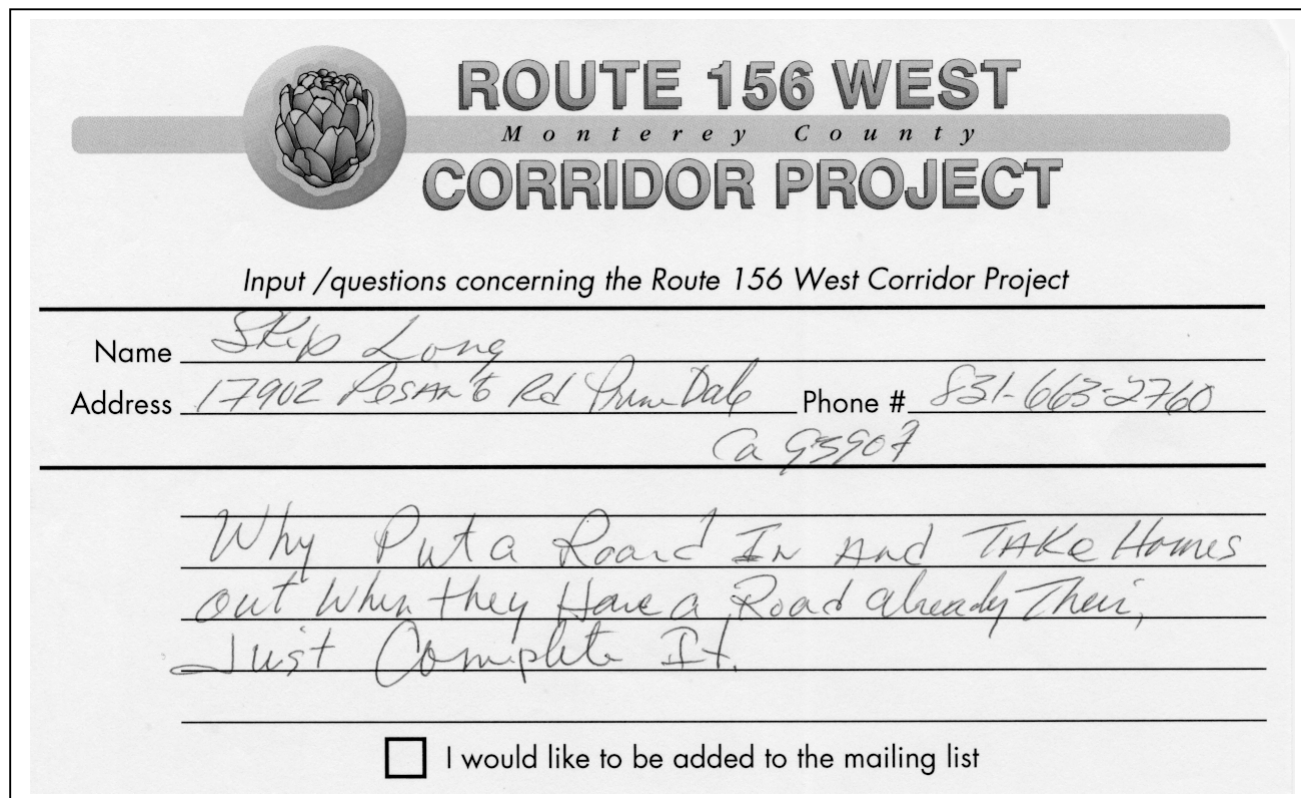 ROUTE 156 WEST
Monterey County
CORRIDOR PROJECT
Input /questions concerning the Route 156 West Corridor Project
Name Skip Long
Address 17902 Rd PrunDale Phone # 831-663-2760
Ca 93907
Why Put a Roard In And TAKe Homes
out When they Have a Road already Their,
Just Complete It.
I would like to be added to the mailing list